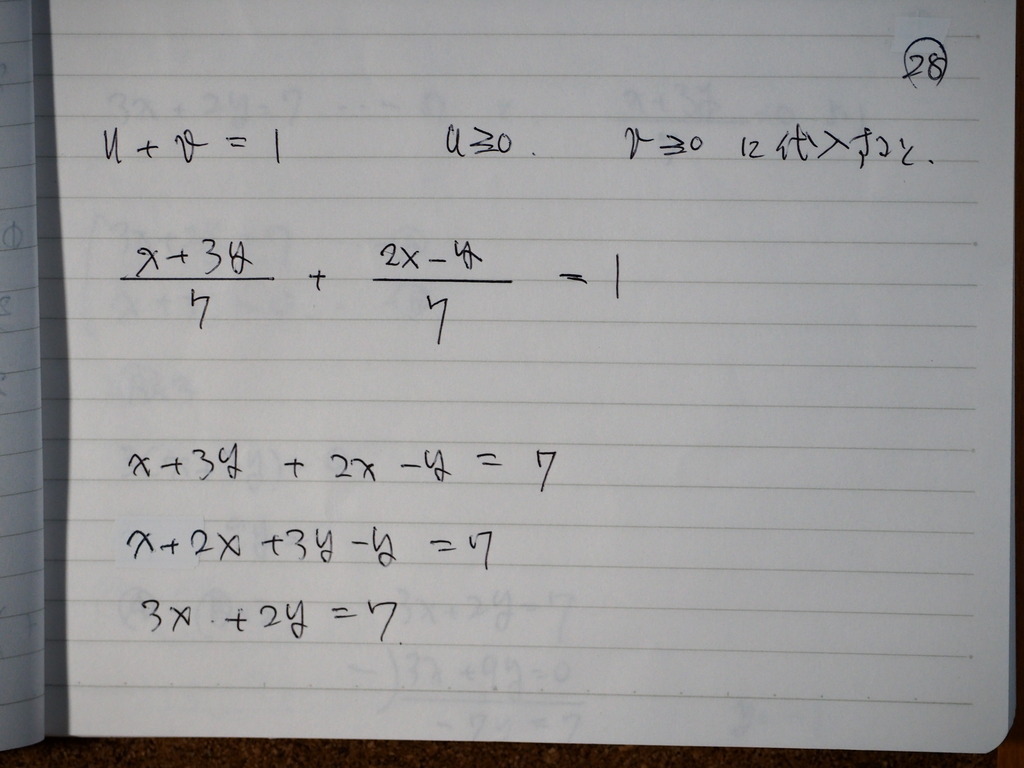 28
u + v = 1 u≥0. v≥0 に代入すると.
(x+3y)/7 + (2x-y)/7 = 1
x+3y + 2x -y = 7
x+2x+3y-y = 7
3x + 2y = 7.